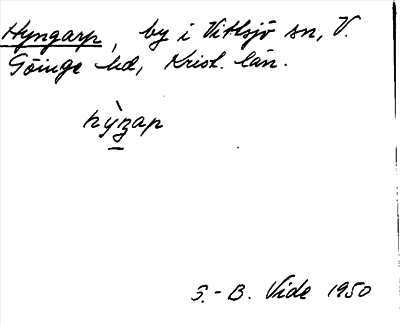 Hyngarp, by i Vittsjö sn, V.
Göinge hd, Krist. län.
hỳŋap
S.-B. Vide 1950